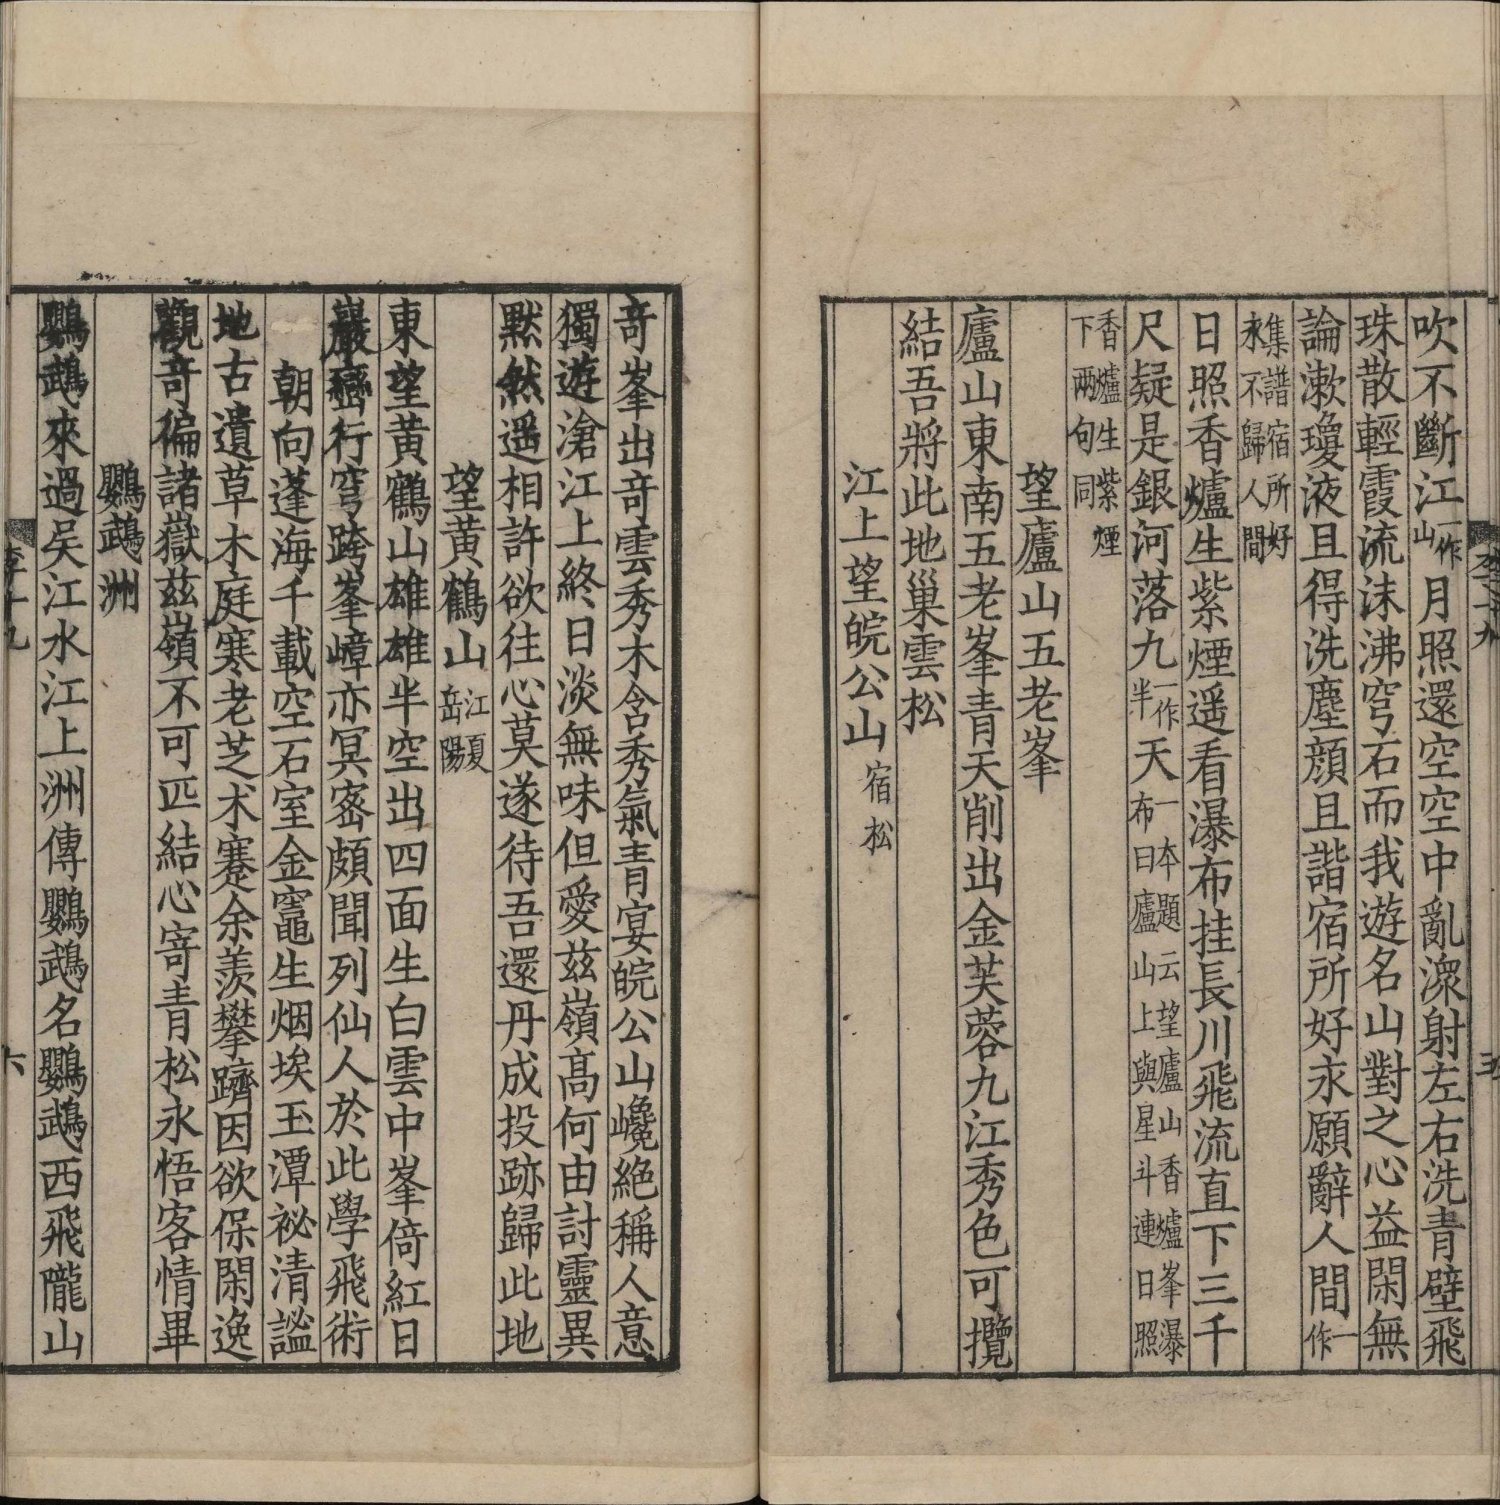 吹不斷江一作山月照還空空中亂潨射左右洗青壁飛
珠散輕霞流沫沸穹石而我遊名山對之心益閑無
論漱瓊液且得洗塵顔且諧宿所好永願辭人間一作
集譜宿所好
永不歸人間
日照香爐生紫煙遥看瀑布挂長川飛流直下三千
尺疑是銀河落九一作半天一本題云望廬山香爐峯瀑布曰廬山上與星斗連日照
香爐生紫煙
下兩句同
望廬山五老峯
廬山東南五老峯青天削出金芙蓉九江秀色可攬
結吾將此地巢雲松
江上望皖公山宿松
奇峯出奇雲秀木含秀氣青宴皖公山巉絶稱人意
獨遊滄江上終日淡無味但愛茲嶺高何由討靈異
黙然遥相許欲往心莫遂待吾還丹成投跡歸此地
望黄鶴山江夏岳陽
東望黄鶴山雄雄半空出四面生白雲中峯倚紅日
巖巒行穹跨峯嶂亦冥密頗聞列仙人於此學飛術
朝向蓬海千載空石室金竈生烟埃玉潭祕清謐
地古遺草木庭寒老芝术蹇余羨攀躋因欲保閑逸
觀奇徧諸嶽茲嶺不可匹結心寄青松永悟客情畢
鸚鵡洲
鸚鵡來過吴江水江上洲傳鸚鵡名鸚鵡西飛隴山
李十九
五
李十九
六